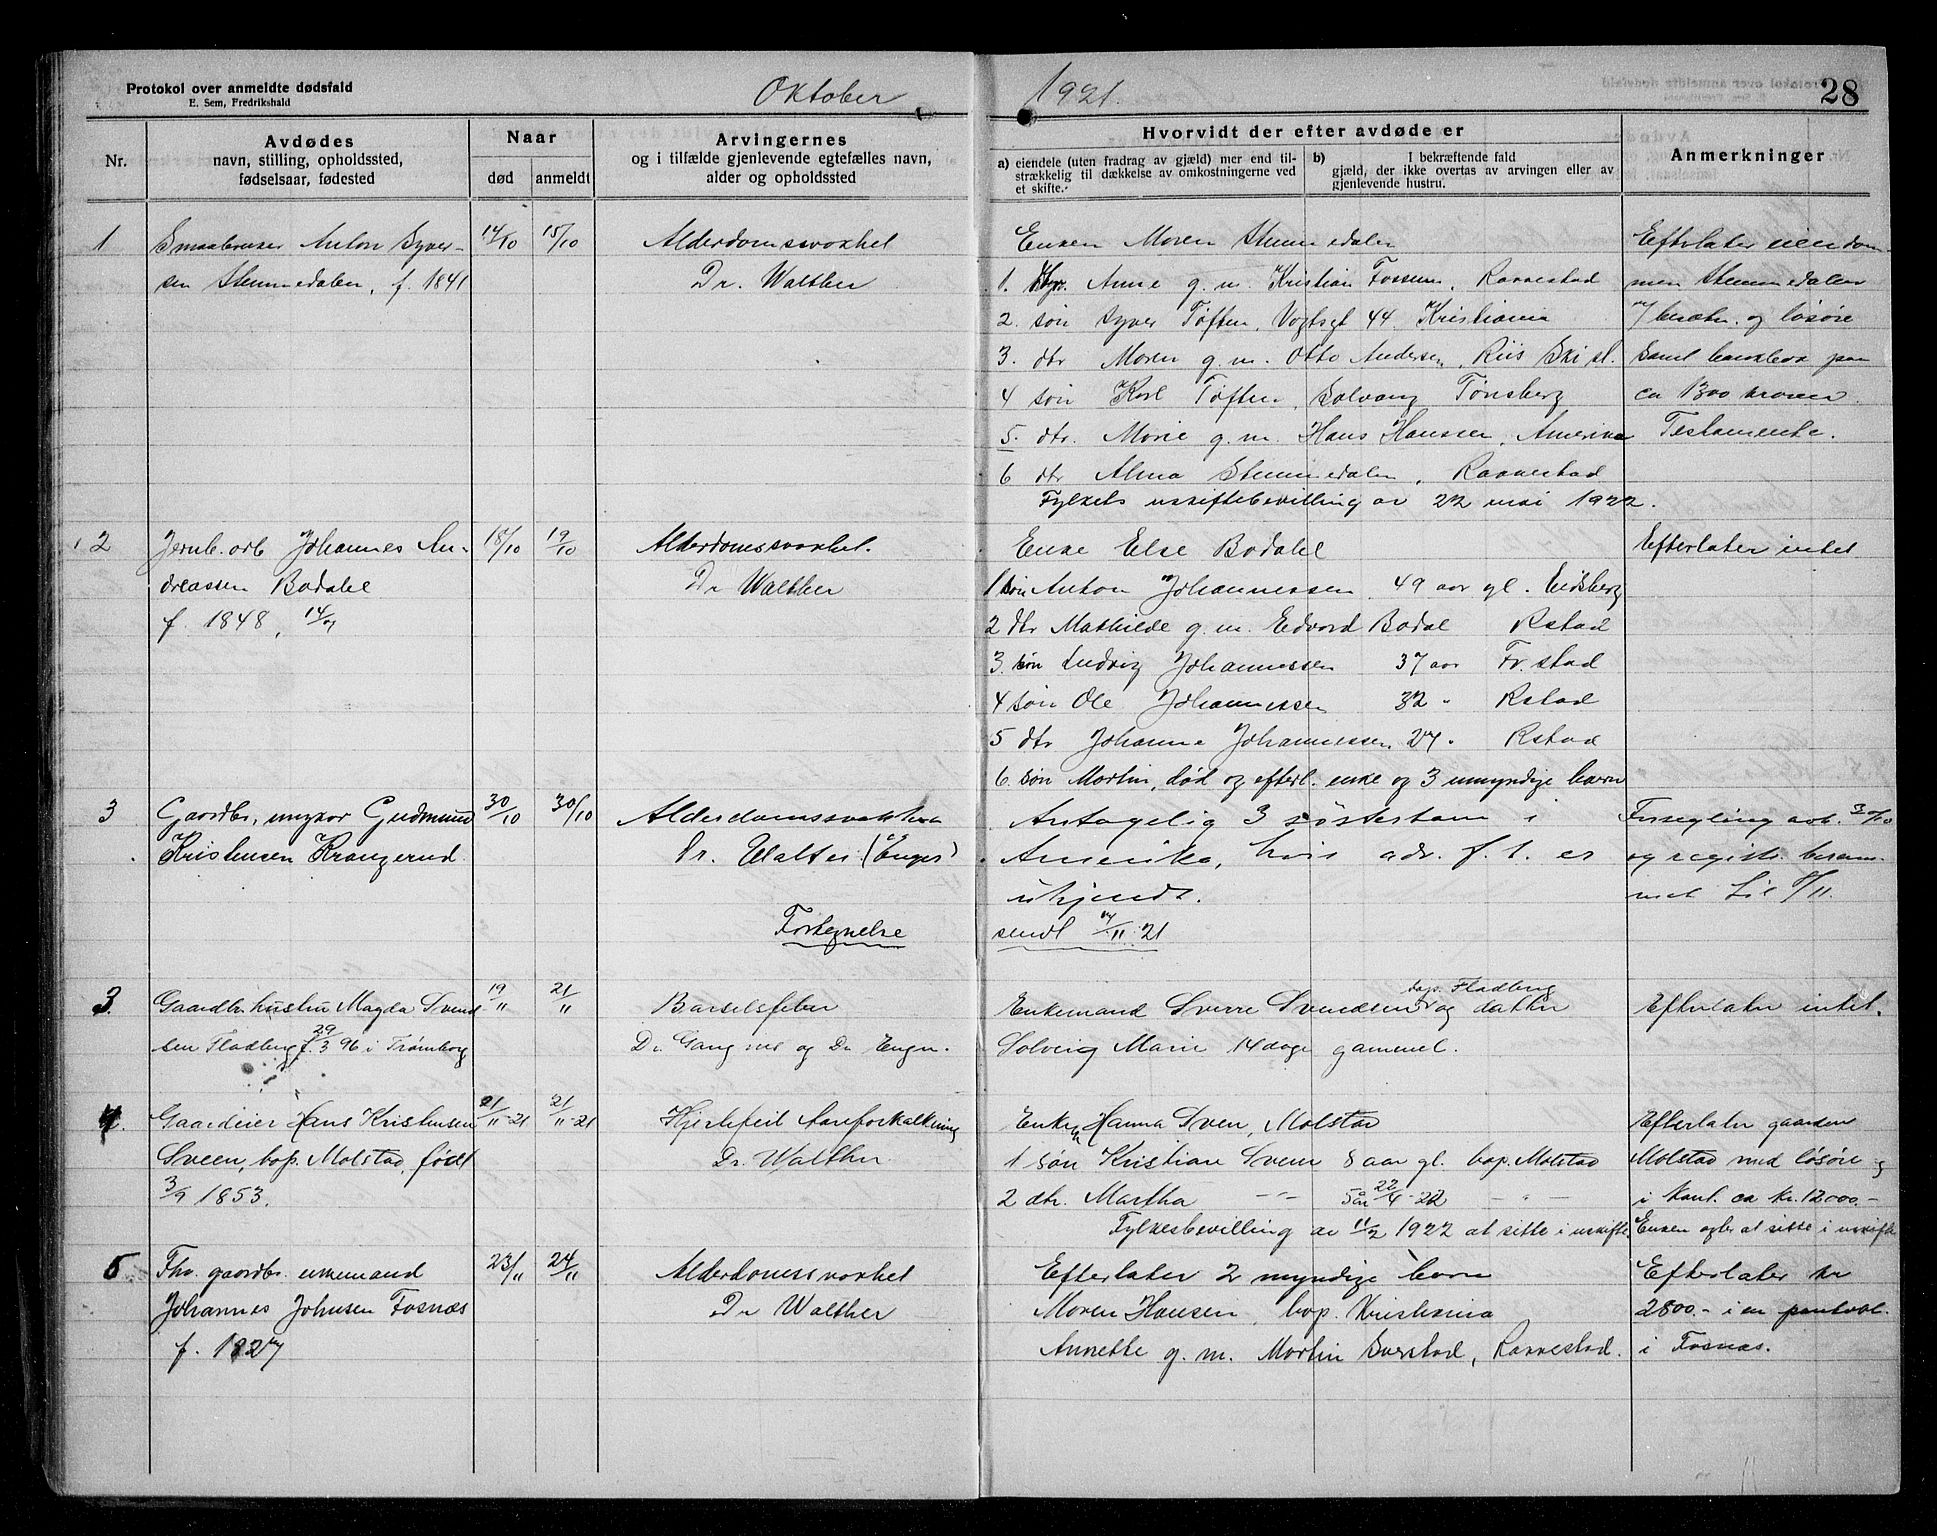 Protokol over anmeldte dødsfald
E. Sem, Fredrikshald
Oktober 1921.
28
Nr.
Avdødes
navn, stilling, opholdssted,
fødselsaar, fødested
Naar
død
anmeldt
Arvingernes
og i tilfælde gjenlevende egtefælles navn,
alder og opholdssted
Hvorvidt der efter avdøde er
a) eiendele (uten fradrag av gjæld) mer end til-
strækkelig til dækkelse av omkostningerne ved
et skifte.
b) I bekræftende fald
gjæld, der ikke overtas av arvingen eller av
gjenlevende hustru.
Anmerkninger
1
Smaabruker Anton Syver-
sen Stemmedalen, f. 1841
14/10
15/10
Alderdomssvakhet
Dr. Walther
Enken Maren Stemmedalen
1. Dtr. Anne g. m. Kristian Fossum, Rakkestad
2. søn Syver Tøften, Vogtsgt 44. Kristiania
3. dtr Maren g. m. Otto Andersen, Riis Ski st.
4 søn Karl Tøften, Solvang Tønsberg
5. dtr. Marie g. m. Hans Hansen, Amerika
6 dtr Alma Stemmedalen, Rakkestad
Fylkets uskiftebevilling av 22 mai 1922.
Efterlater eiendom-
men Stemmedalen
m/ besætn. og løsøre
samt bankbok paa
ca 1300 kroner.
Testamente.
2
Jernb. arb Johannes An-
dreassen Bodahl
f. 1848, 14/7
18/10
19/10
Alderdomssvakhet.
Dr Walther
Enke Else Bodahl
1 søn Anton Johannessen 49 aar gl. Eidsberg
2 dtr Mathilde g. m. Edvard Bodal Rstad
3. søn Ludvig Johannessen 37 aar Fr. stad
4 søn Ole Johannessen 32 " Rstad
5 dtr Johanne Johannessen 27 " Rstad
6. søn Martin, død og efterl. enke og 3 umyndige barn
Efterlater intet
3
Gaardbr, ungkar Gudmund
Kristensen Krangerud.
30/10
30/10
Alderdomssvakhet
Dr. Walter (Enger)
Fortegnelse
Antagelig 3 søsterbarn i
Amerika, hvis adr. f. t. er
ukjendt.
sendt 17/11 21
Forsegling avh. 30/10
og registr. beram-
met til 8/11.
3
Gaardbr. hustru Magda Svend
sen Fladberg f. 29/3 96 i Trømborg
19/11
21/11
Barselsfeber
Dr. Gangnes og Dr Enger.
Enkemand Sverre Svendsen bop. Fladberg og datter
Solveig Marie 14 dage gammel.
Efterlater intet.
4.
Gaardeier Hans Kristensen
Sveen, bop. Molstad, født
3/9 1853.
21/11-21
21/11-21
Hjertefeil Aareforkalkning
Dr. Walther
Enken Hanna Sveen, Molstad
1 søn Kristian Sveen 8 aar gl. bop. Molstad
2 dtr. Martha -"- 5 år 22/4-22 -"-
Fylkesbevilling av 11/2 1922 at sitte i uskifte.
Efterlater gaarden
Molstad med løsøre og
i kont. ca kr. 12000.-
Enken agter at sitte i uskifte
5
Fhv. gaardbr. enkemand
Johannes Johnsen Fosnæs
f. 1827
23/11
24/11
Alderdomssvakhet
Dr Walther
Efterlater 2 myndige barn
Maren Hansen, bop. Kristiania
Annette g. m. Martin Sverstad, Rakkestad.
Efterlater kr
2800.- i en pantobl.
i Fosnæs.